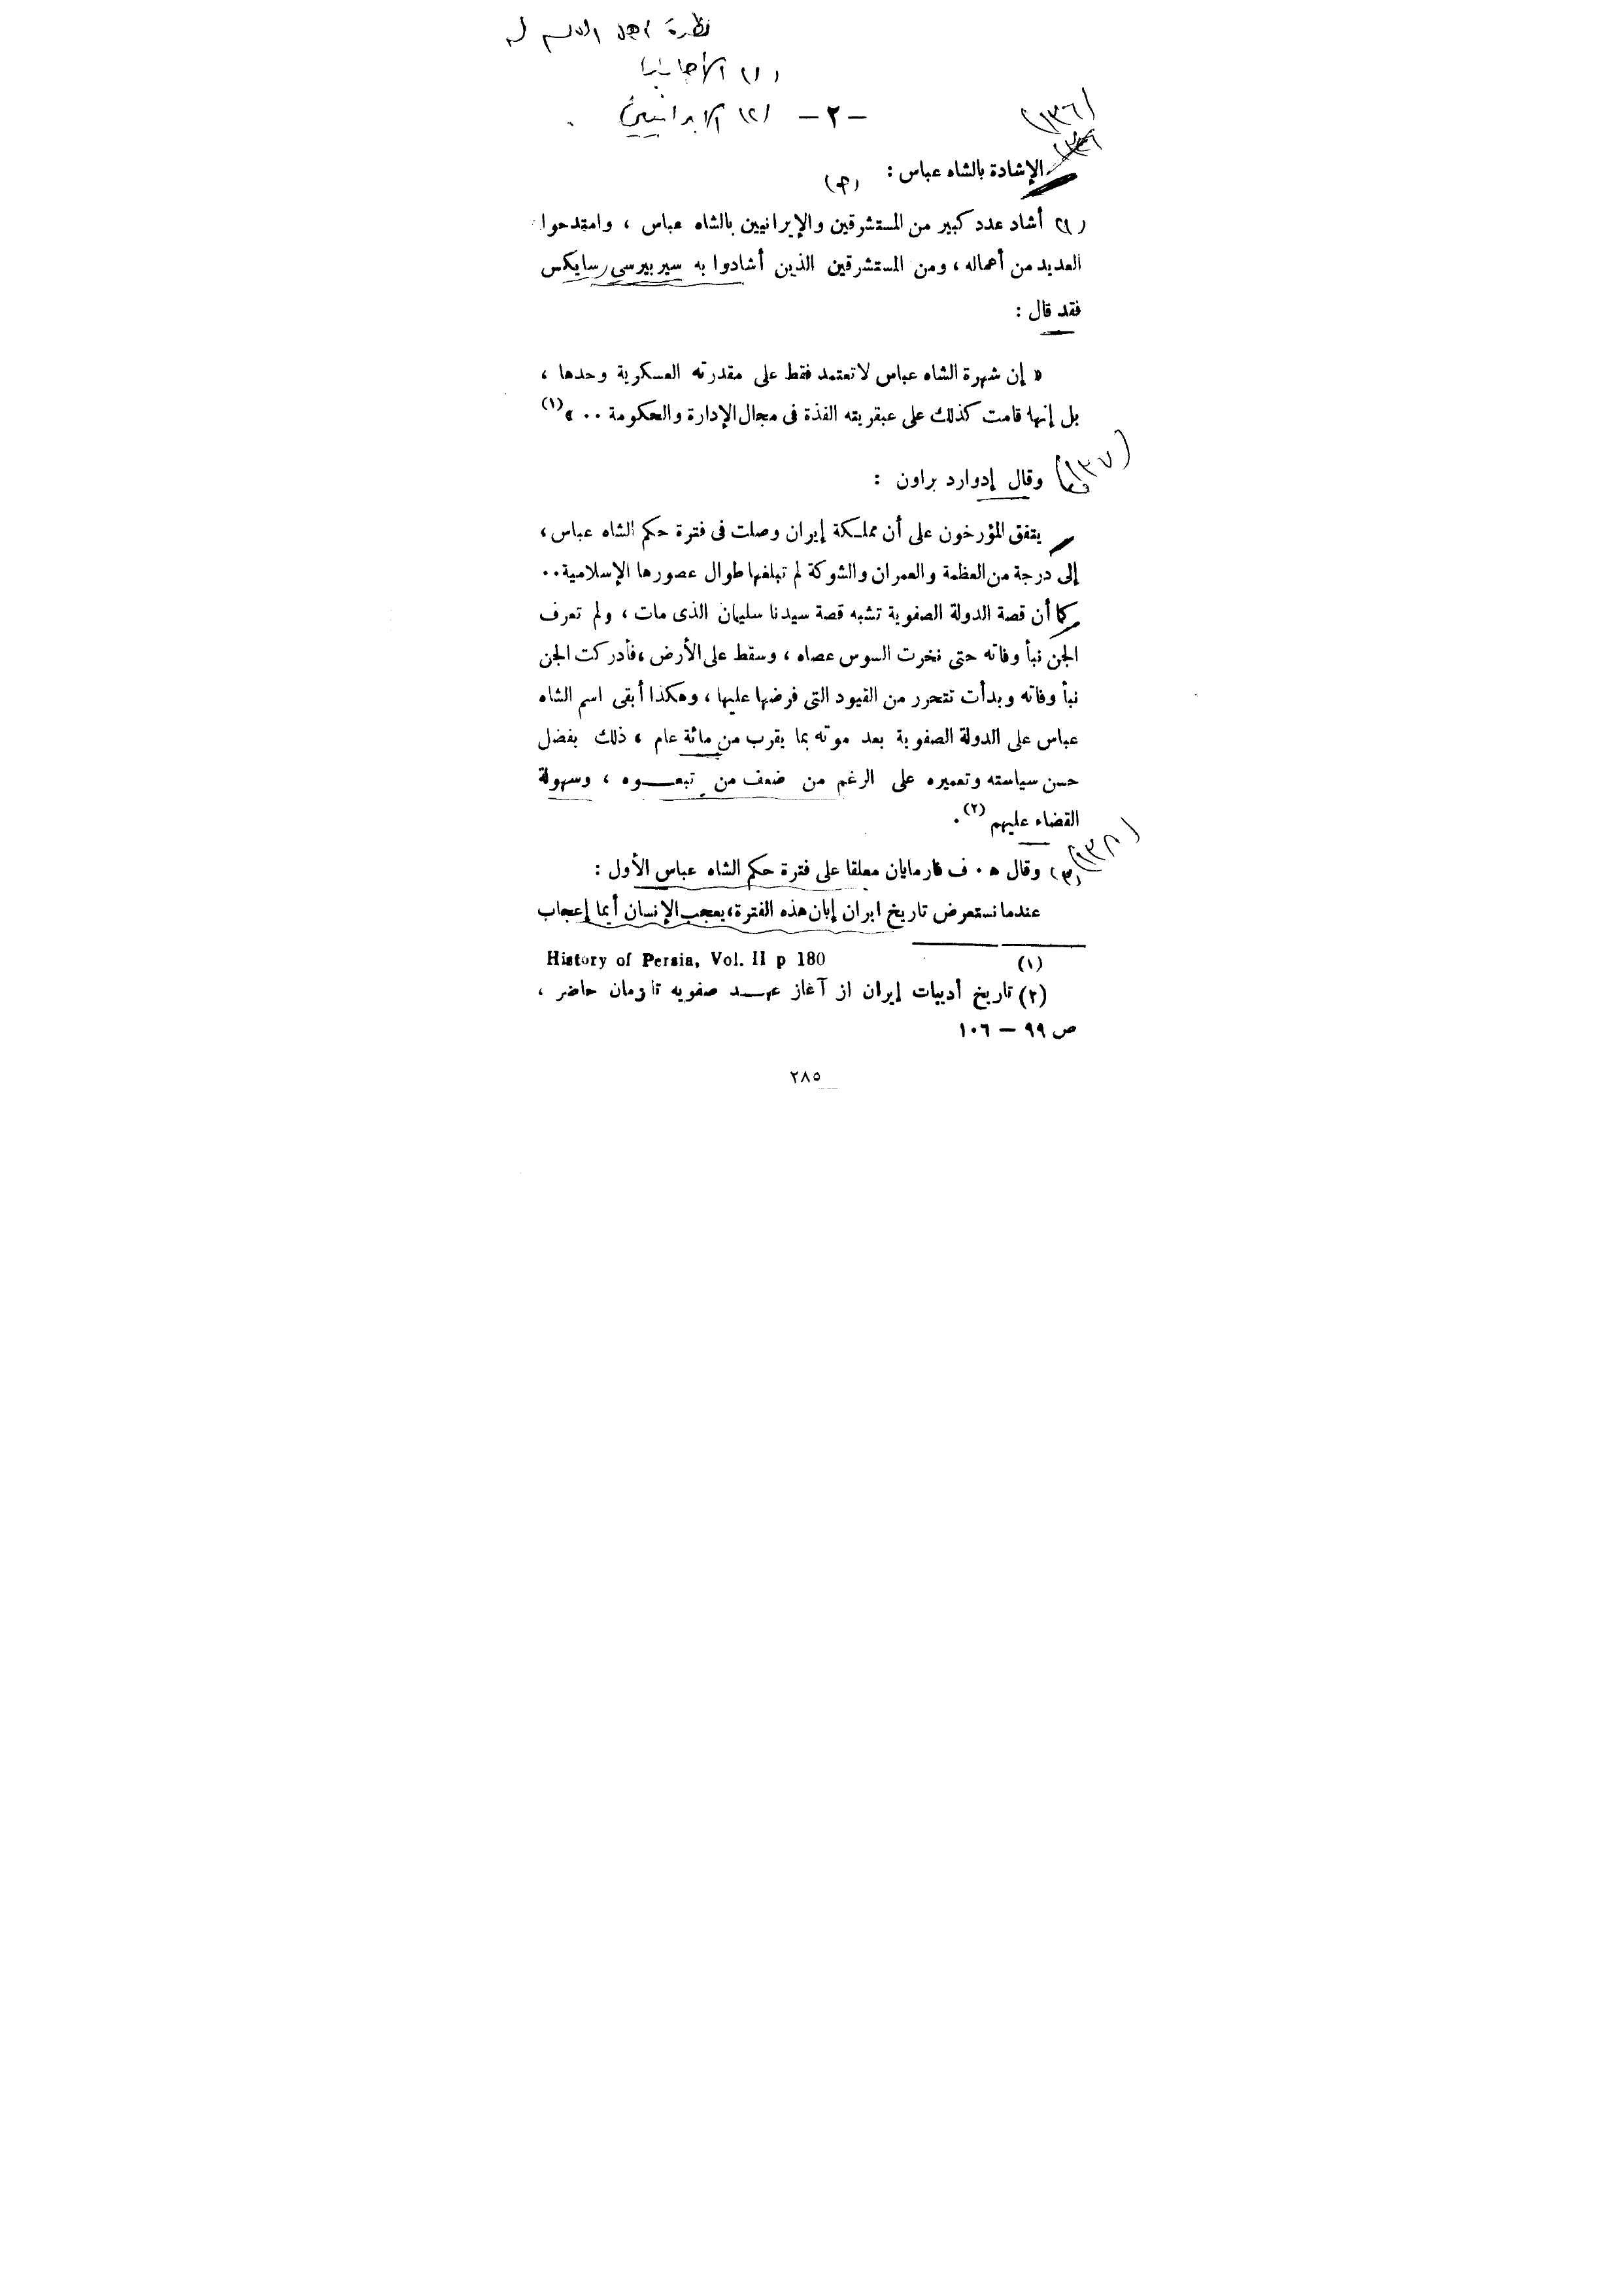 نظرة اهل العلم له
(١) الأجانب
(٢) الايرانيين
— ٢ —
(١٣٦)
الإشادة بالشاه عباس :
(١) أشاد عدد كبير من المستشرقين والإيرانيين بالشاه عباس ، وامتدحوا
العديد من أعماله ، ومن المستشرقين الذين أشادوا به سير بيرسي سايكس
فقد قال :
« إن شهرة الشاه عباس لا تعتمد فقط على مقدرته العسكرية وحدها ،
بل إنها قامت كذلك على عبقريته الفذة فى مجال الإدارة والحكومة . . » (١)
(١٣٧)
وقال إدوارد براون :
يتفق المؤرخون على أن مملكة إيران وصلت فى فترة حكم الشاه عباس ،
إلى درجة من العظمة والعمران والشوكة لم تبلغها طوال عصورها الإسلامية . .
كما أن قصة الدولة الصفوية تشبه قصة سيدنا سليمان الذى مات ، ولم تعرف
الجن نبأ وفاته حتى نخرت السوس عصاه ، وسقط على الأرض ، فأدركت الجن
نبأ وفاته وبدأت تتحرر من القيود التى فرضها عليها ، وهكذا أبقى اسم الشاه
عباس على الدولة الصفوية بعد موته بما يقرب من مائة عام ، ذلك بفضل
حسن سياسته وتعميره على الرغم من ضعف من تبعوه ، وسهولة
القضاء عليهم (٢) .
(١٣٨)
(٣) وقال ه . ف فارمايان معلقا على فترة حكم الشاه عباس الأول :
عندما نستعرض تاريخ ايران إبان هذه الفترة ، يعجب الإنسان أيما إعجاب
(١) History of Persia, Vol. II p 180
(٢) تاريخ أدبيات إيران از آغاز عهد صفويه تا زمان حاضر ،
ص ٩٩ — ١٠٦
٢٨٥